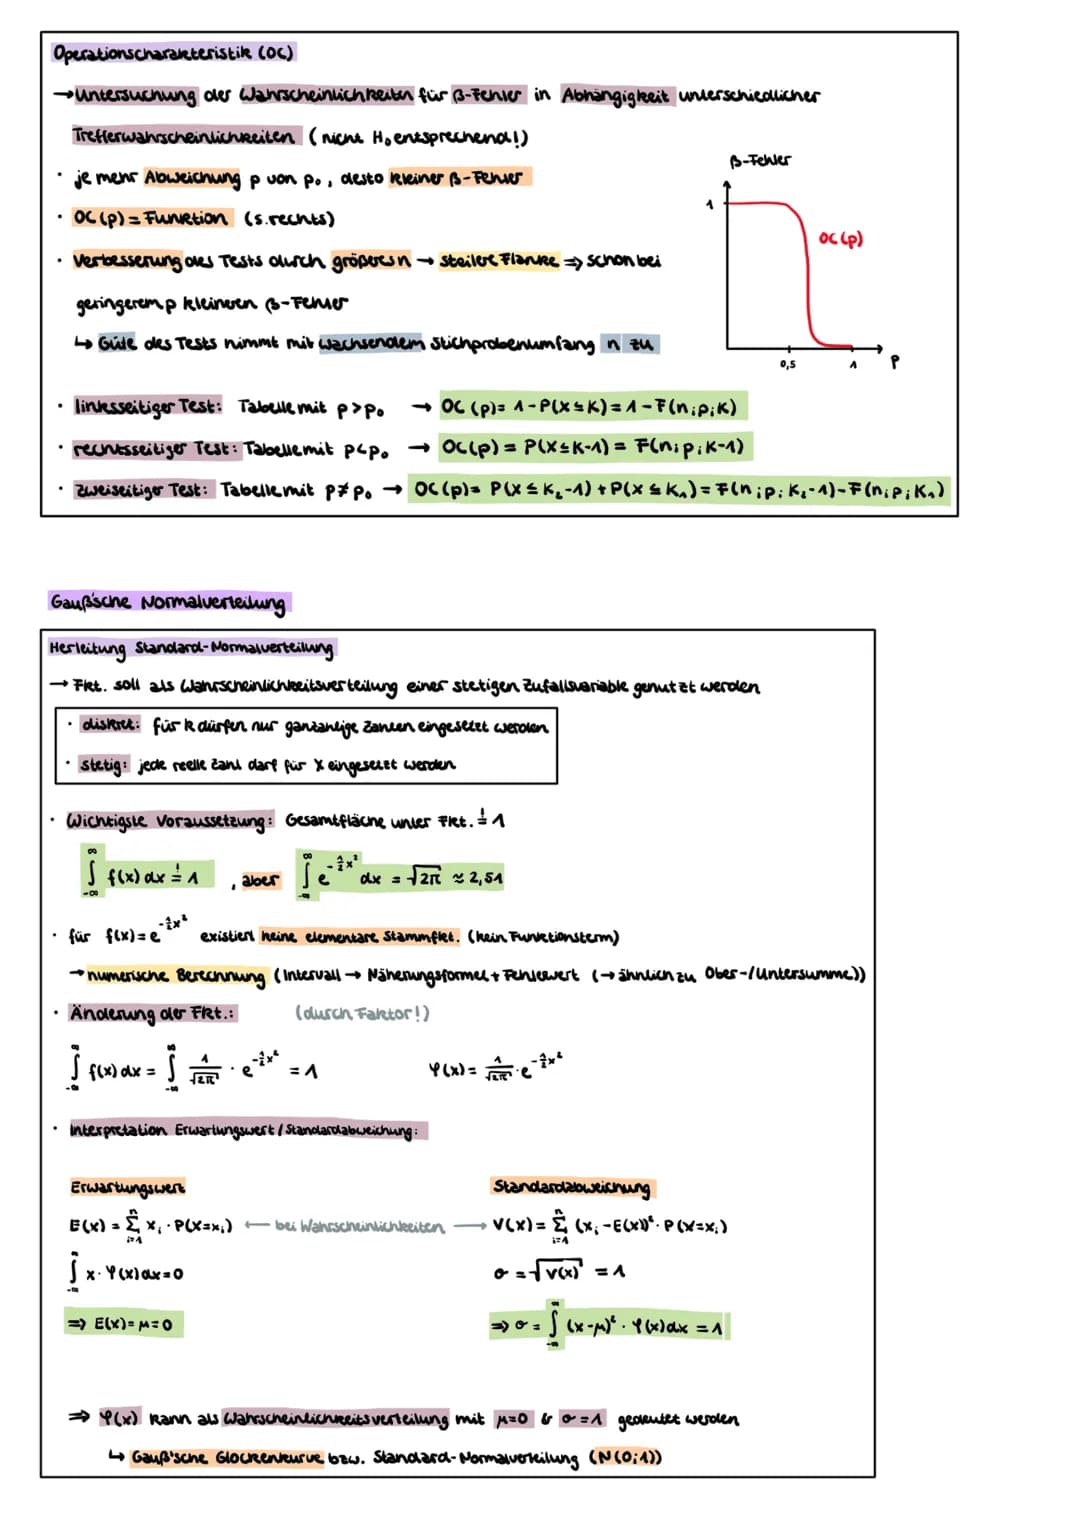 Operationscharakteristik (OC)
→ Untersuchung der Wahrscheinlichkeiten für β-Fehler in Abhängigkeit unterschiedlicher
Trefferwahrscheinlichkeiten (nicht H₀ entsprechend!)
• je mehr Abweichung p von p₀, desto kleiner β-Fehler
• OC(p) = Funktion (s. rechts)
• Verbesserung des Tests durch größeres n → steilere Flanke ⇒ schon bei
geringerem p kleineren β-Fehler
↳ Güte des Tests nimmt mit wachsendem Stichprobenumfang n zu
β-Fehler
1
OC(p)
0,5
1
p
• linksseitiger Test: Tabelle mit p>p₀ → OC(p) = 1-P(X≤K) = 1-F(n;p;K)
• rechtsseitiger Test: Tabelle mit p<p₀ → OC(p) = P(X≤K-1) = F(n;p;K-1)
• zweiseitiger Test: Tabelle mit p≠p₀ → OC(p) = P(X≤K₂-1)+P(X≤K₁) = F(n;p;K₂-1)-F(n;p;K₁)
Gauß'sche Normalverteilung
Herleitung Standard-Normalverteilung
→ Fkt. soll als Wahrscheinlichkeitsverteilung einer stetigen Zufallsvariable genutzt werden
• diskret: für k dürfen nur ganzzahlige Zahlen eingesetzt werden
• stetig: jede reelle Zahl darf für X eingesetzt werden
• Wichtigste Voraussetzung: Gesamtfläche unter Fkt. =! 1
∫_{-∞}^{∞} f(x) dx =! 1 , aber ∫_{-∞}^{∞} e^{-½x²} dx = √2π ≈ 2,51
• für f(x) = e^{-½x²} existiert keine elementare Stammfkt. (kein Funktionsterm)
→ numerische Berechnung (Intervall → Näherungsformel + Fehlerwert (→ ähnlich zu Ober-/Untersumme))
• Änderung der Fkt.: (durch Faktor!)
∫_{-∞}^{∞} f(x) dx = ∫_{-∞}^{∞} 1/√2π · e^{-½x²} = 1 φ(x) = 1/√2π · e^{-½x²}
• Interpretation Erwartungswert / Standardabweichung:
Erwartungswert Standardabweichung
E(x) = Σ_{i=1}^{n} xᵢ · P(X=xᵢ) ← bei Wahrscheinlichkeiten → V(x) = Σ_{i=1}^{n} (xᵢ-E(x))² · P(X=xᵢ)
∫_{-∞}^{∞} x · φ(x) dx = 0 σ = √V(x) = 1
⇒ E(x) = μ = 0 ⇒ σ = ∫_{-∞}^{∞} (x-μ)² · φ(x) dx = 1
⇒ φ(x) kann als Wahrscheinlichkeitsverteilung mit μ=0 & σ=1 gedeutet werden
↳ Gauß'sche Glockenkurve bzw. Standard-Normalverteilung (N(0;1))